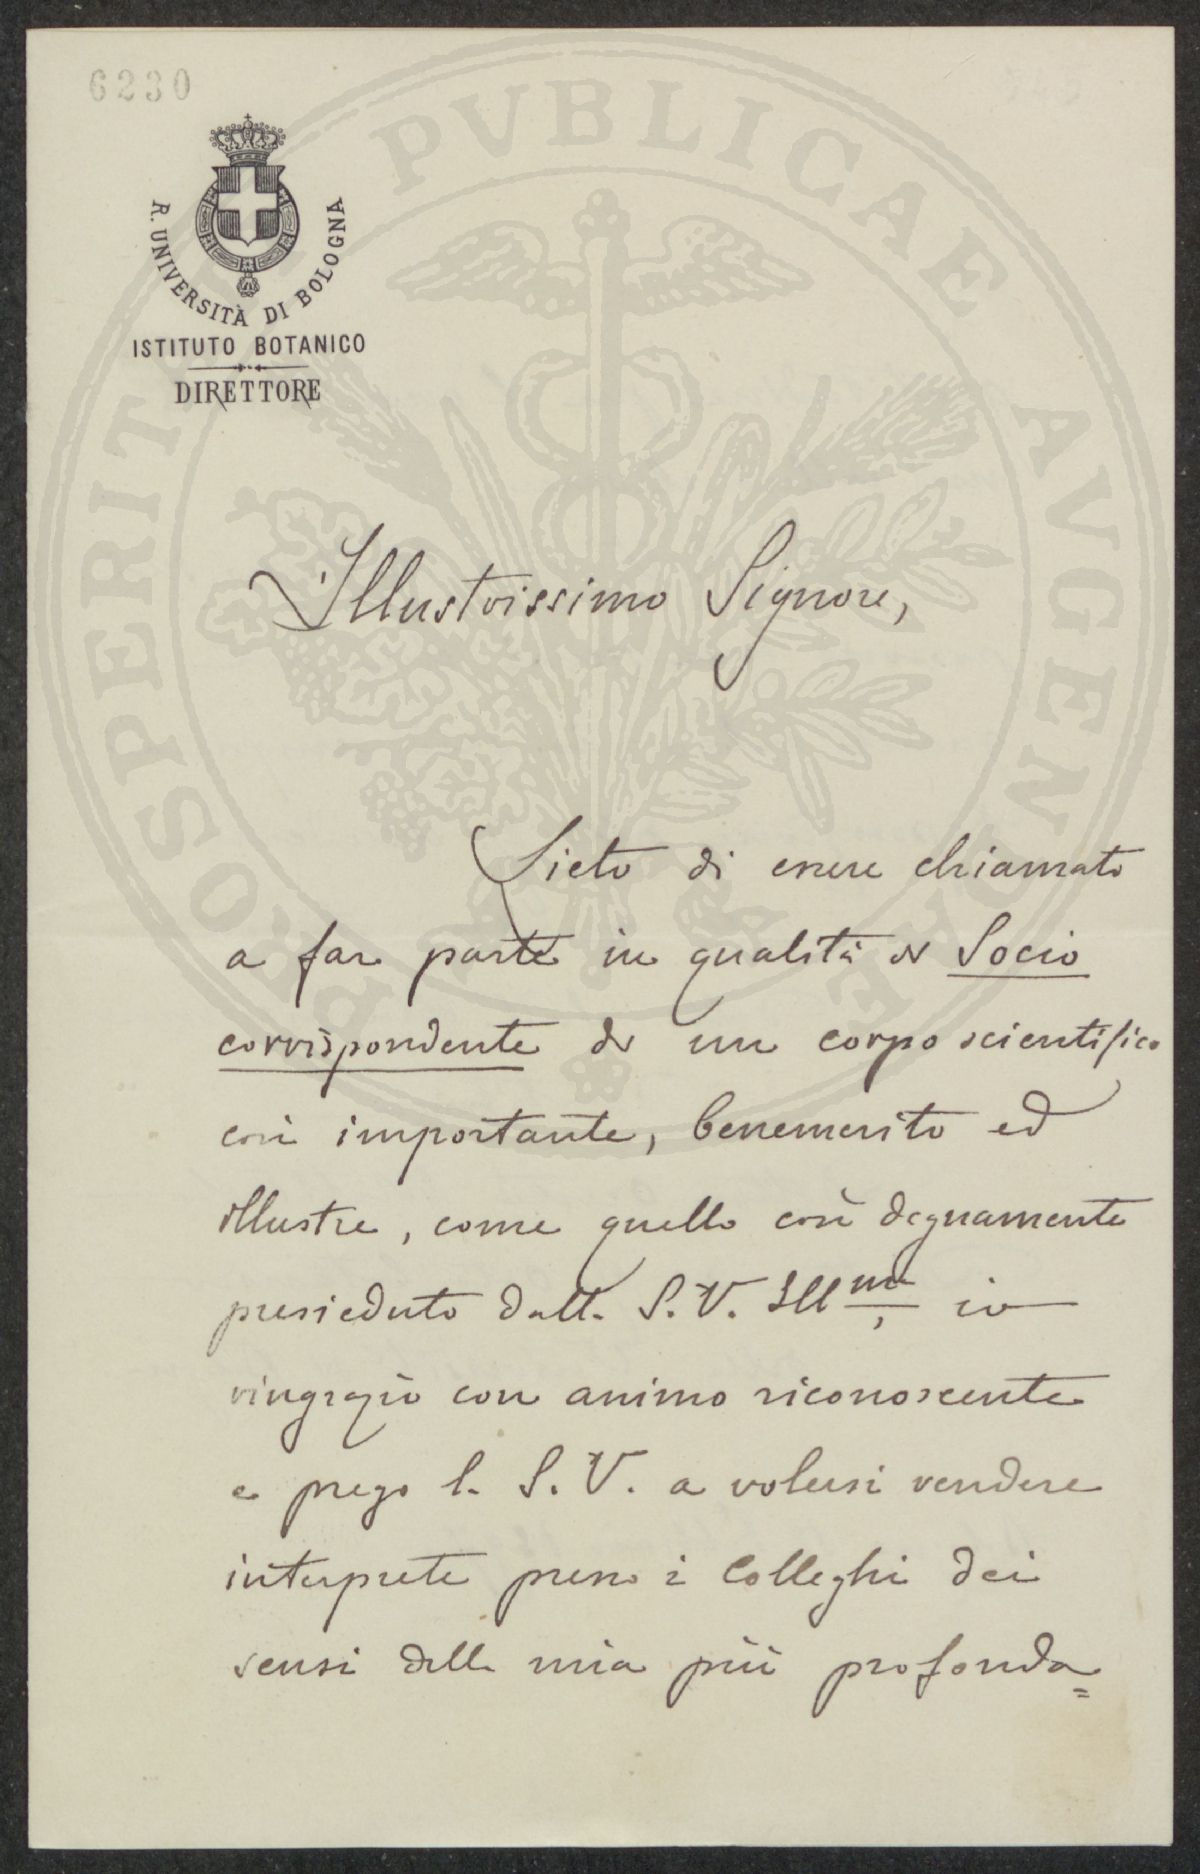 6230
R. UNIVERSITÀ DI BOLOGNA
ISTITUTO BOTANICO
DIRETTORE
PROSPERITATI PVBLICAE AVGENDAE
Illustrissimo Signore,
Lieto di essere chiamato
a far parte in qualità di Socio
corrispondente di un corpo scientifico
così importante, benemerito ed
illustre, come quello così degnamente
presieduto dalla S. V. Illma, io
ringrazio con animo riconoscente
e prego la S. V. a volersi rendere
interprete presso i Colleghi dei
sensi della mia più profonda=